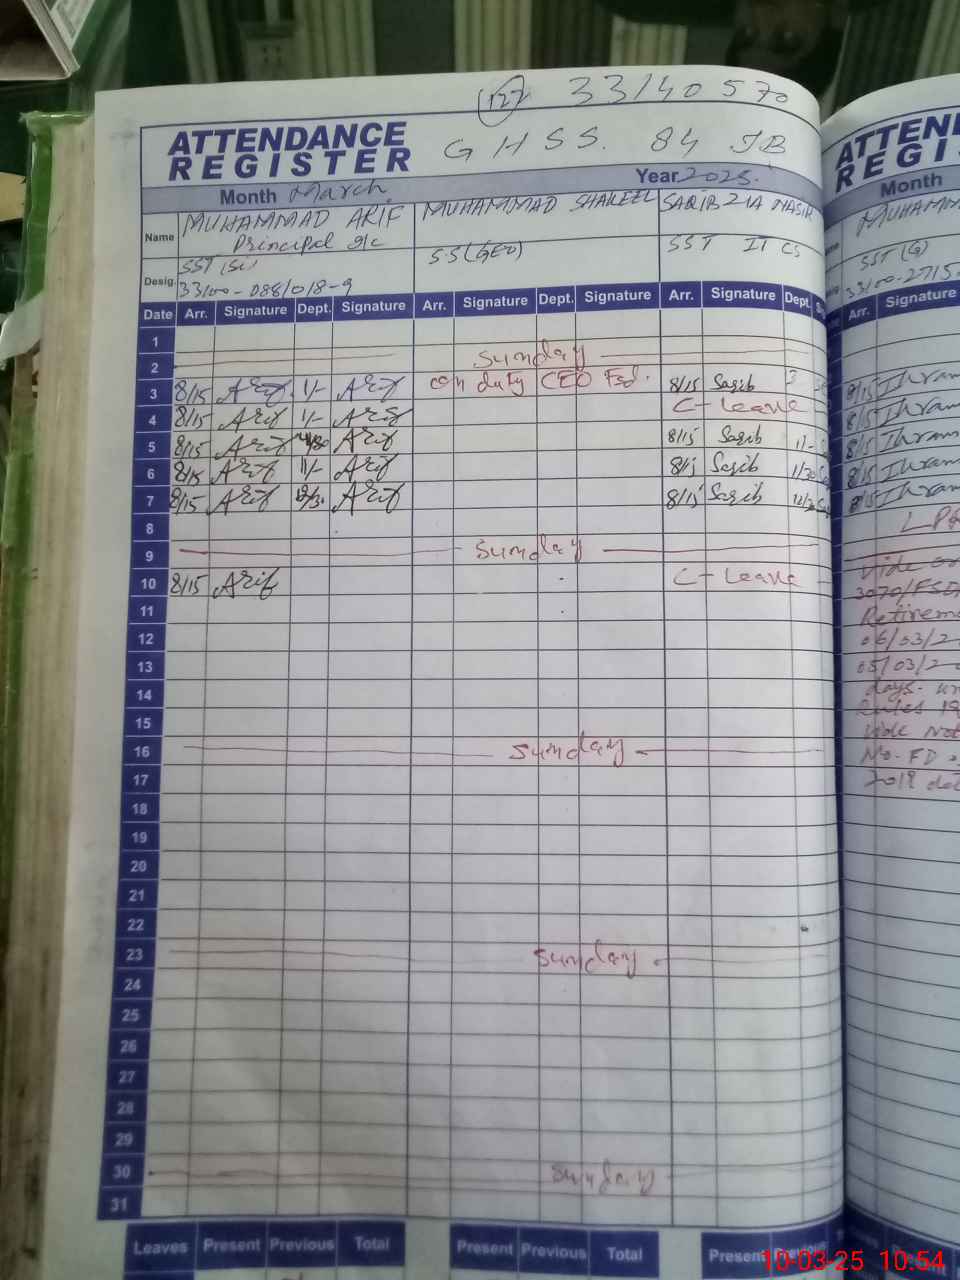 127 33140570
ATTENDANCE REGISTER GHSS. 84 JB
Month March Year 2025.
Name MUHAMMAD ARIF MUHAMMAD SHAKEEL SAQIB ZIA NASIR
Principal I/C S.S (GEO) SST IT CS
Desig. SST
33100-0881018-9
Date Arr. Signature Dept. Signature Arr. Signature Dept. Signature Arr. Signature Dept.
1
2 Sunday
3 8/15 Arif 1/- Arif on duty CEO Fsd. 8/15 Saqib
4 8/15 Arif 1/- Arif C-Leave
5 8/15 Arif Arif 8/15 Saqib 1/-
6 8/15 Arif 1/- Arif Saqib 11/30
7 8/15 Arif 12/30 Arif 8/15 Saqib 12/30
8
9 Sunday
10 8/15 Arif C-Leave
11
12
13
14
15
16 Sunday
17
18
19
20
21
22
23 Sunday
24
25
26
27
28
29
30 Sunday
31
Leaves Present Previous Total Present Previous Total Present Previous
ATTEN
REGI
Month
MUHAMM
SST (G)
Arr. Signature
8/15 Ikram
8/15 Ikram
8/15 Ikram
8/15 Ikram
8/15 Ikram
Vide
3070/FSD
Retirem
06/03/2
05/03/2
days.
Rules
vide Not
No. FD
10-03-25 10:54